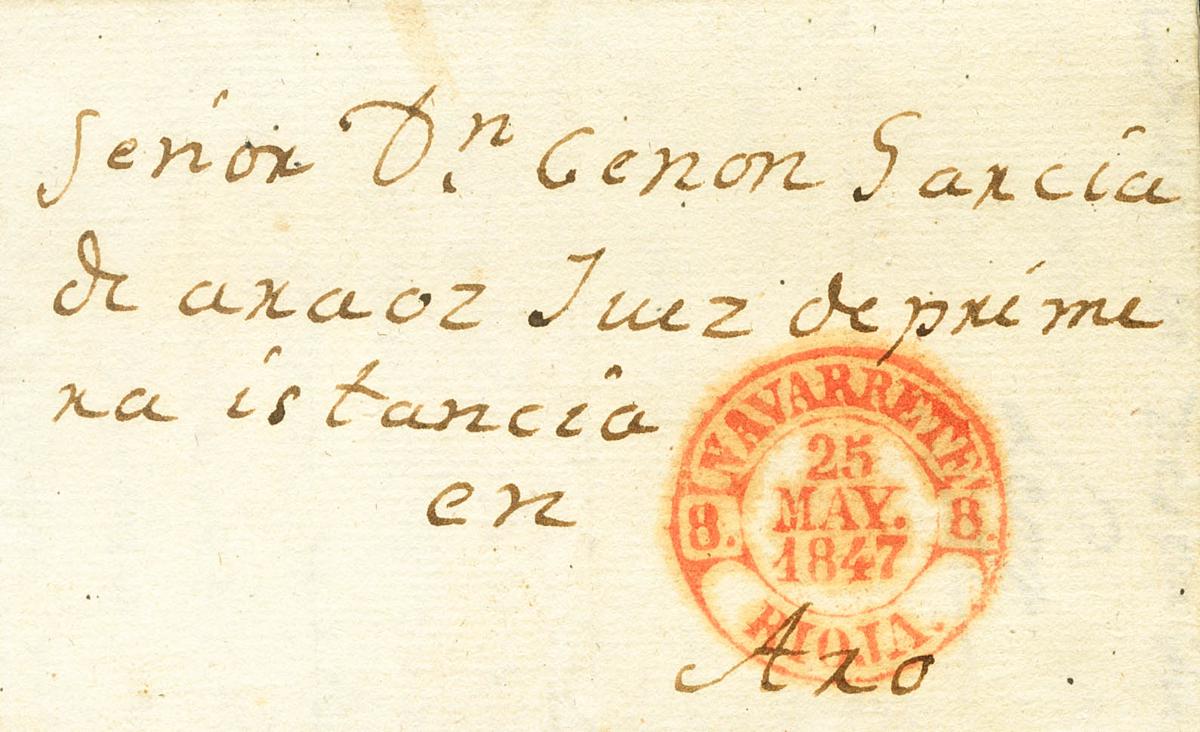 Señor Dn. Cenon Garcia
de araoz Juez de prime
ra istancia
en
Aro
NAVARRETE
8. 8.
25
MAY.
1847
RIOJA.